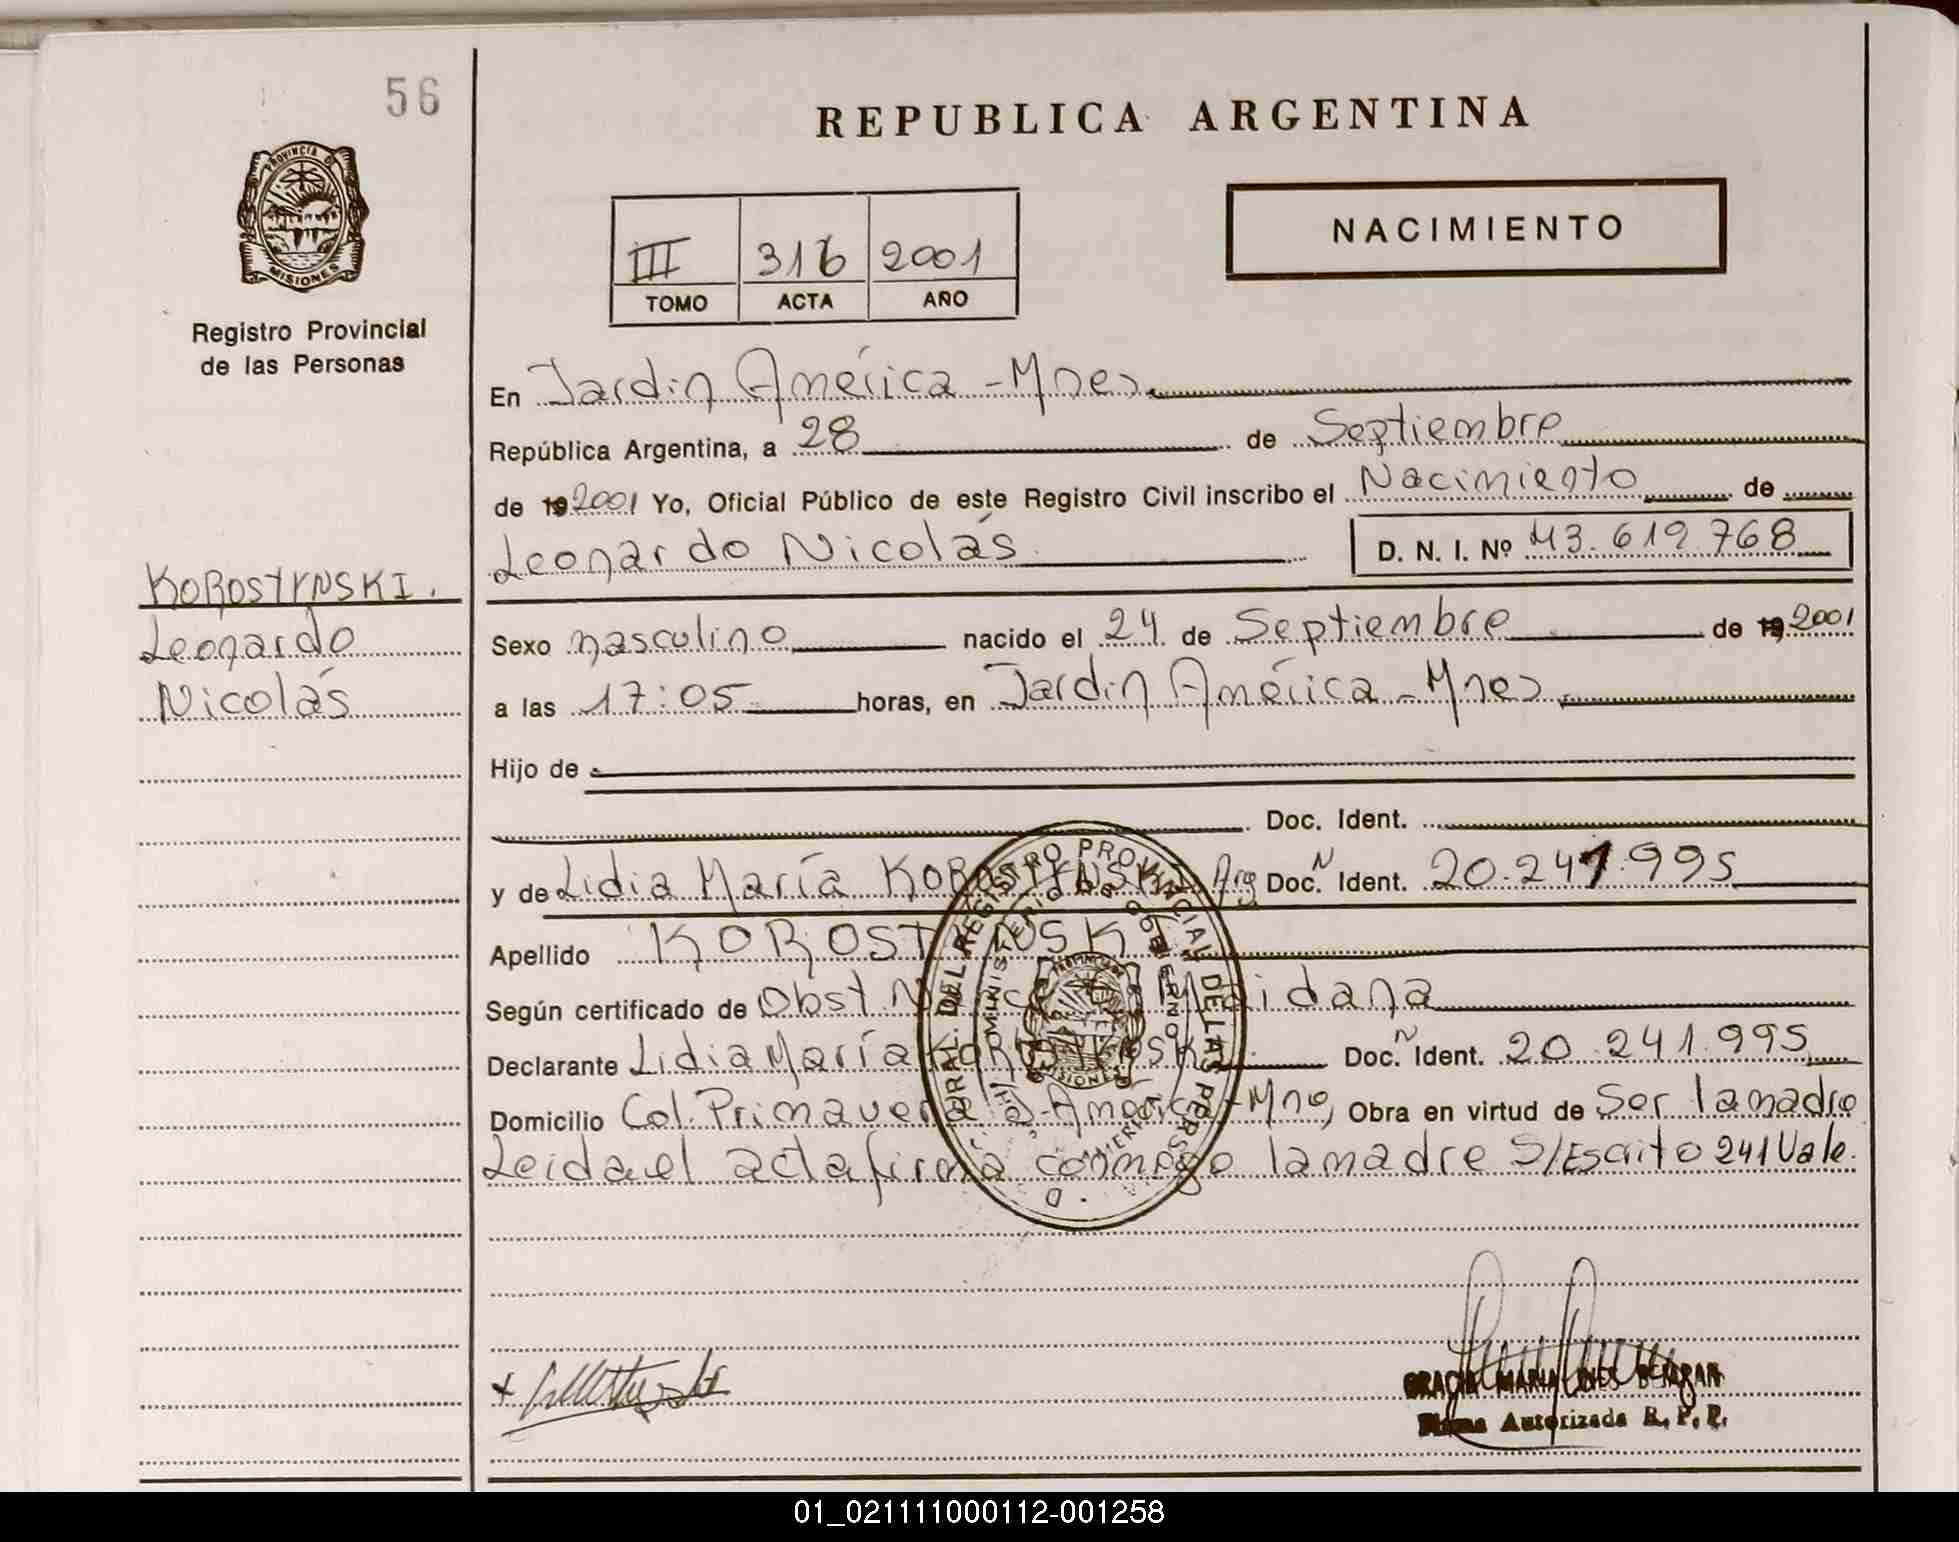 56
REPUBLICA ARGENTINA
PROVINCIA DE
MISIONES
Registro Provincial
de las Personas
III 316 2001
TOMO ACTA AÑO
NACIMIENTO
En Jardin América - Mnes
República Argentina, a 28 de Septiembre
de 19 2001 Yo, Oficial Público de este Registro Civil inscribo el Nacimiento de
Leonardo Nicolás D. N. I. Nº 43.619.768
KOROSTYNSKI.
Leonardo
Nicolás
Sexo masculino nacido el 24 de Septiembre de 19 2001
a las 17:05 horas, en Jardin América - Mnes
Hijo de
Doc. Ident.
y de Lidia María KOROSTYNSKI Arg Doc. N Ident. 20.241.995
Apellido KOROSTYNSKI
Según certificado de Obst. Maidana
Declarante Lidia María KOROSTYNSKI Doc. Ñ Ident. 20.241.995
Domicilio Col. Primavera - América - Mnes, Obra en virtud de Ser la madre
Leida el acta firma conmigo la madre S/Escrito 241 Vale.
DEL REGISTRO PROVINCIAL DE LAS PERSONAS
MINISTERIO DE GOBIERNO
PROVINCIA DE
MISIONES
GRACIA MARIA INES BEJARAN
Firma Autorizada R. P. P.
01_021111000112-001258